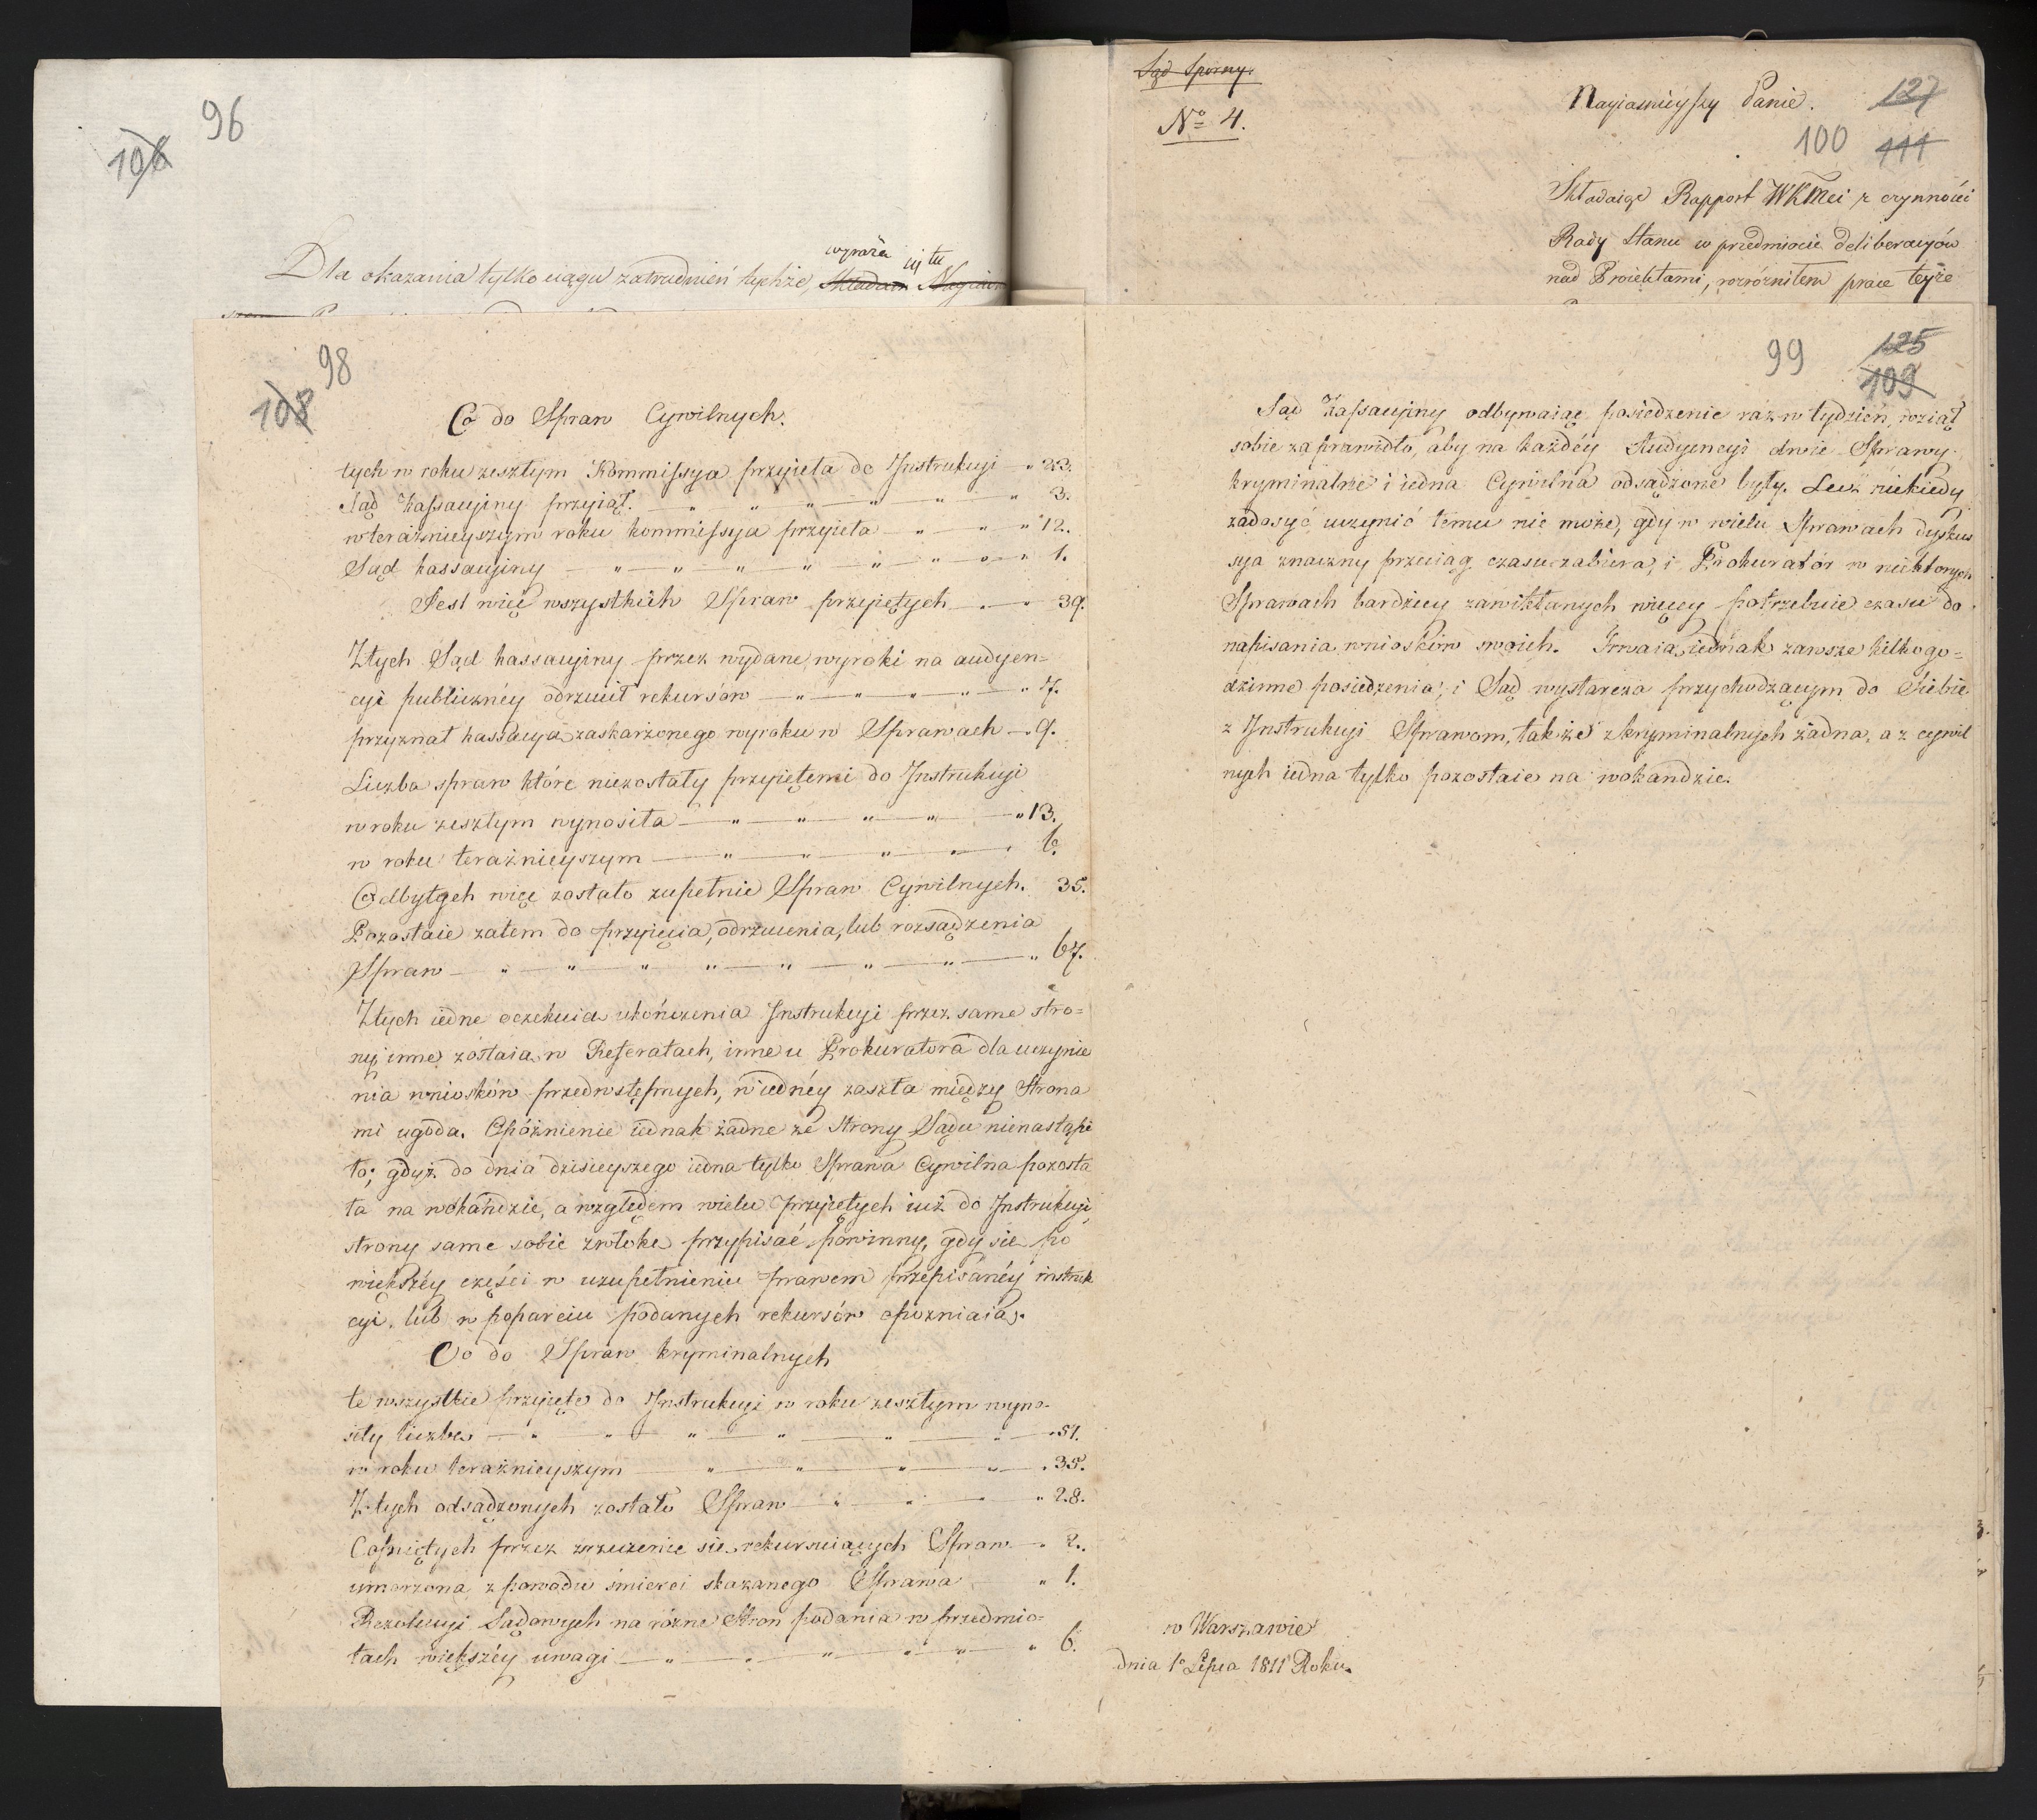 96
106
Dla okazania tylko ciągu zatrudnień tychże, Składam Nayiaśn
wyraża iij tu
98
108
Co do Spraw Cywilnych.
tych w roku zeszłym Kommissya przyięła do Instrukcyi — " 23.
Sąd Kassacyiny przyiął. — " — " — " — " — " 3.
w teraźnieyszym roku kommissya przyięła — " — " — " 12.
Sąd kassacyiny — " — " — " — " — " — " — " 1.
Jest więc wszystkich Spraw przyiętych — " — " 39.
Z tych Sąd kassacyiny przez wydane wyroki na audyen=
cyi publicznéy odrzucił rekursów — " — " — " — " — " 7.
przyznał kassacyą zaskarżonego wyroku w Sprawach — " 9.
Liczba spraw które niezostały przyiętemi do Instrukcyi
w roku zeszłym wynosiła — " — " — " — " — " 13.
w roku teraźnieyszym — " — " — " — " — " 6.
Odbytych więc zostało zupełnie Spraw Cywilnych. 35.
Pozostaie zatem do przyięcia, odrzucenia, lub rozsądzenia
Spraw — " — " — " — " — " — " — " — " 67.
Z tych iedne oczekuią ukończenia Instrukcyi przez same stro=
ny, inne zostaią w Referatach, inne u Prokuratora dla uczynie
nia wniosków przedwstępnych, w iednéy zaszła między Strona
mi ugoda. Opóźnienie iednak żadne ze Strony Sądu nienastąpi
ło; gdyż do dnia dzisieyszego iedna tylko Sprawa Cywilna pozosta
ła na wokandzie, a względem wielu przyiętych iuż do Instrukcyi,
strony same sobie zwłokę przypisać powinny, gdy się po
większéy części w uzupełnieniu prawem przepisanéy instruk
cyi, lub w poparciu podanych rekursów opozniaią.
Co do Spraw kryminalnych
te wszystkie przyięte do Instrukcyi w roku zeszłym wyno-
siły liczbę — " — " — " — " — " — " — " 51.
w roku teraźnieyszym — " — " — " — " — " 35.
Z tych odsądzonych zostało Spraw — " — " — " 28.
Cofniętych przez zrzeczenie się rekursuiących Spraw — " 2.
umorzona z powodu śmierci skazanego Sprawa " 1.
Rezolucyi Sądowych na różne Stron podania w przedmio=
tach większéy uwagi — " — " — " — " — " — " 6.
Sąd Sporny.
Nº 4.
Nayiaśnieyszy Panie.
127
100
111
Składaiąc Rapport WKMci z czynności
Rady Stanu w przedmiocie deliberacyów
nad Proiektami, rozróżniłem prace teyże
99
125
109
Sąd Kassacyiny odbywaiąc posiedzenie raz w tydzień, wziął
sobie za prawidło, aby na każdéy Audyencyi dwie Sprawy
kryminalne i iedna Cywilna odsądzone były. Lecz niekiedy
zadosyć uczynić temu nie może, gdy w wielu Sprawach dyskus
sya znaczny przeciąg czasu zabiera, i Prokurator w niektorych
Sprawach bardziey zawikłanych więcey potrzebuie czasu do
napisania wniosków swoich. Trwaią iednak zawsze kilkogo=
dzinne posiedzenia, i Sąd wystarcza przychodzącym do Siebie
z Instrukcyi Sprawom, tak że z kryminalnych żadna, a z cywil
nych iedna tylko pozostaie na wokandzie.
w Warszawie
dnia 1º Lipca 1811 Roku.